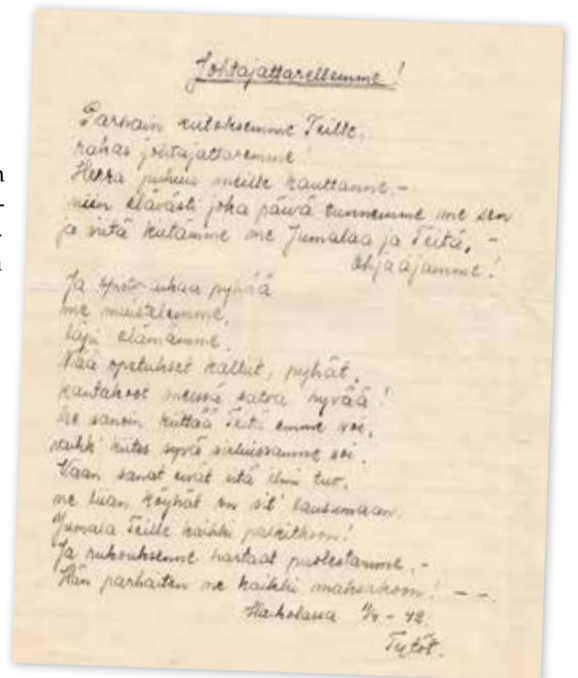 Johtajattarellemme!
Parhain kiitoksemme Teille,
rakas johtajattaremme!
Herra puhuu meille kauttanne,-
niin elävästi joka päivä tunnemme me sen
ja siitä kiitämme me Jumalaa ja Teitä, -
Ohjaajamme!
Ja opisto-aikaa pyhää
me muistelemme,
läpi elämämme.
Nää opetukset kalliit, pyhät,
kantakoot meissä satoa hyvää!
Me sanoin kiittää Teitä emme voi,
vaikk' kiitos syvä sieluissamme soi.
Vaan sanat eivät sitä ilmi tuo,
ne liian köyhät on sit' lausumaan.
Jumala Teille kaikki palkitkoon!
Ja rukouksenne hartaat puolestamme, -
Hän parhaiten ne kaikki maksakoon! - -
- 42.
Tytöt.